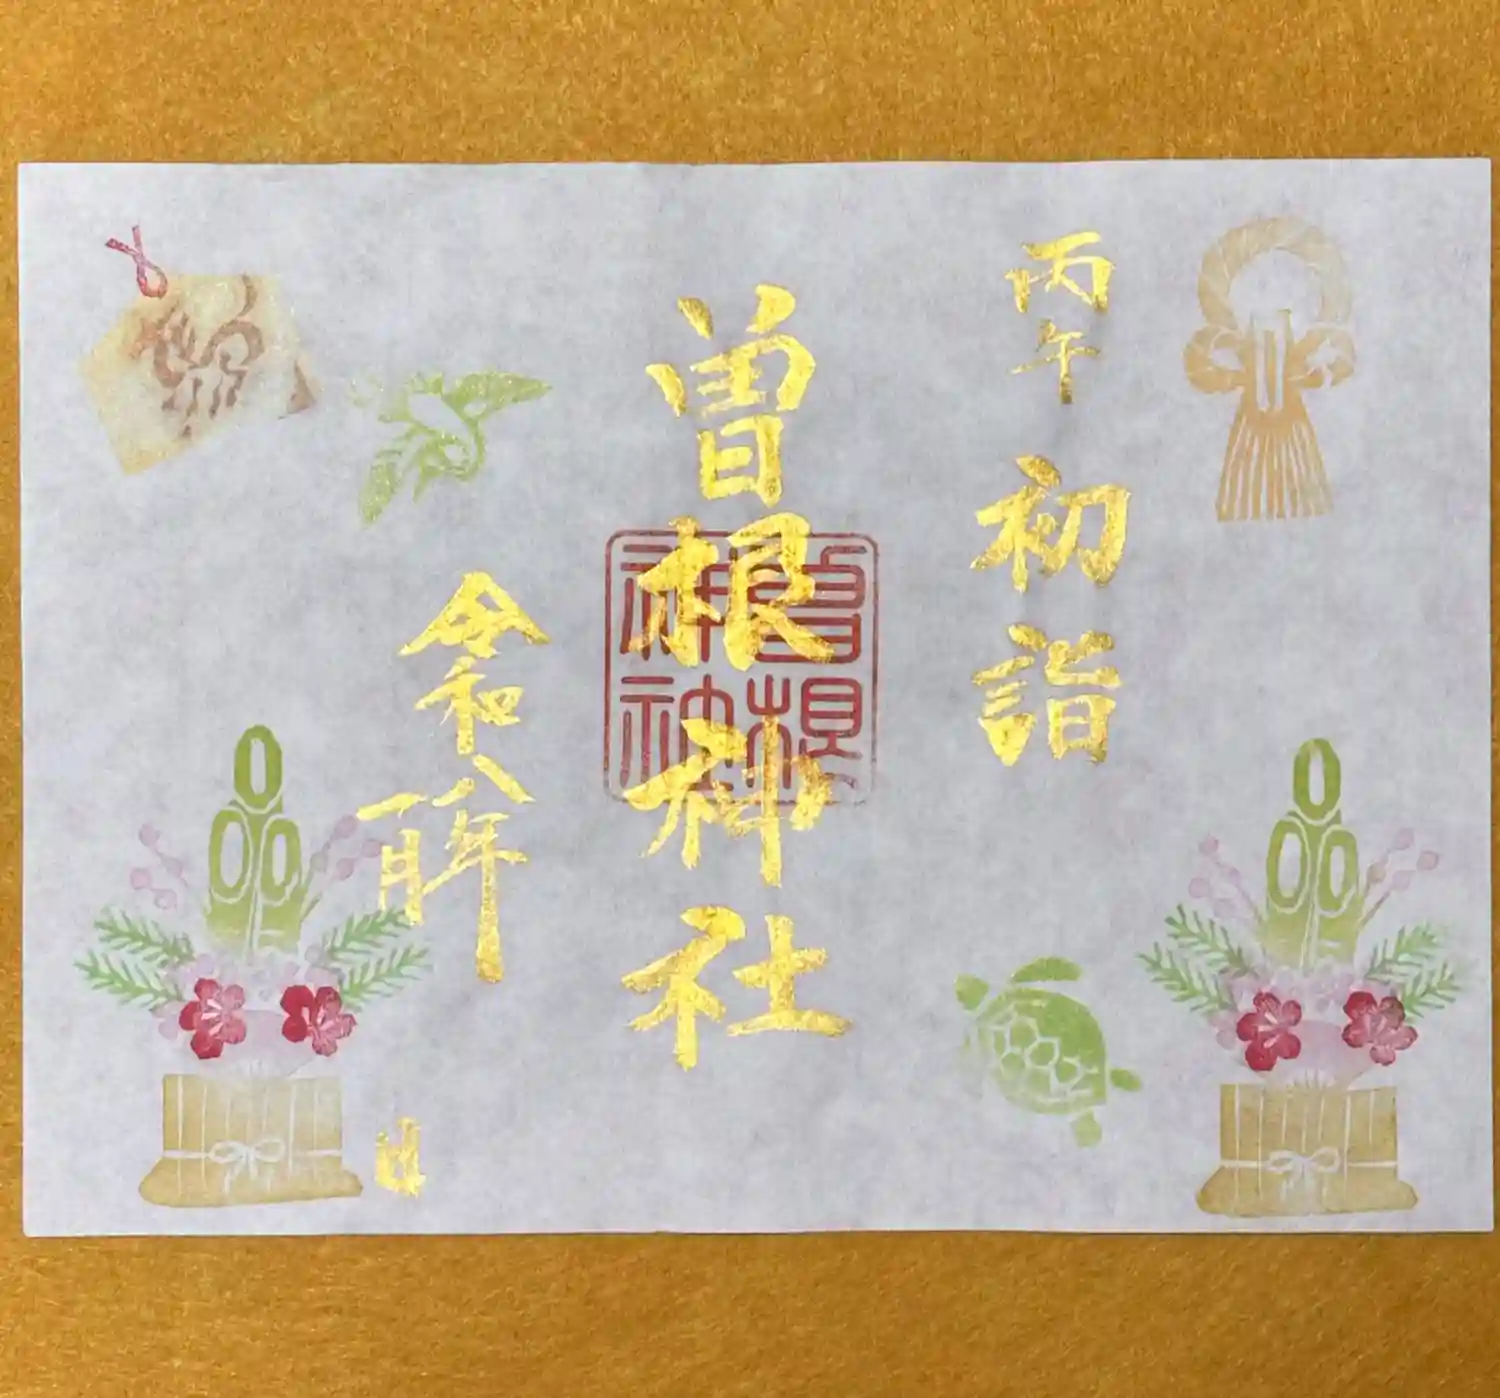 丙午
初詣
曽根神社
曽根
神社
令和八年
一月
日